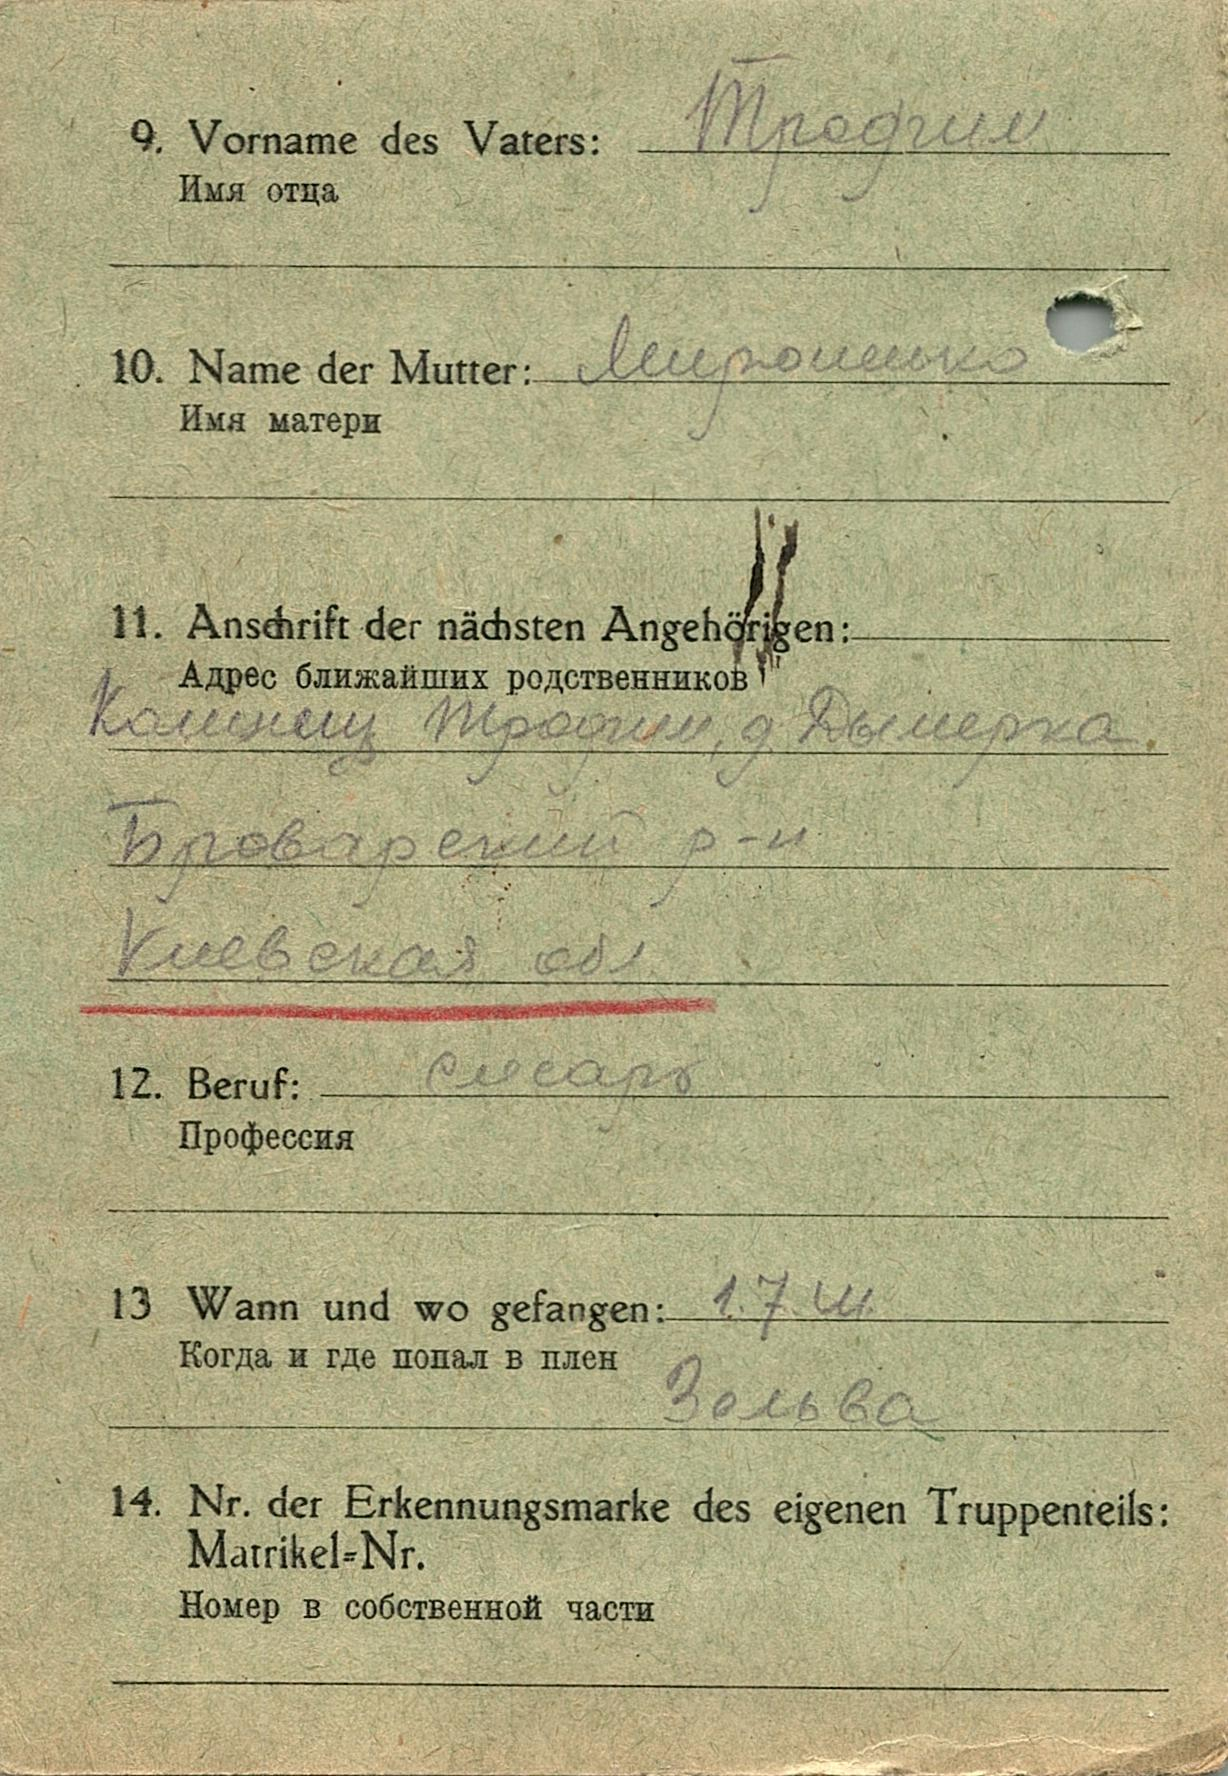 9. Vorname des Vaters: Трофим
Имя отца
10. Name der Mutter: Мироненко
Имя матери
11. Anschrift der nächsten Angehörigen:
Адрес ближайших родственников
Трофим, д. Дымерка
Броварский р-н
Киевская обл
12. Beruf: слесарь
Профессия
13 Wann und wo gefangen: 1.7.41.
Когда и где попал в плен
Зельва
14. Nr. der Erkennungsmarke des eigenen Truppenteils:
Matrikel=Nr.
Номер в собственной части